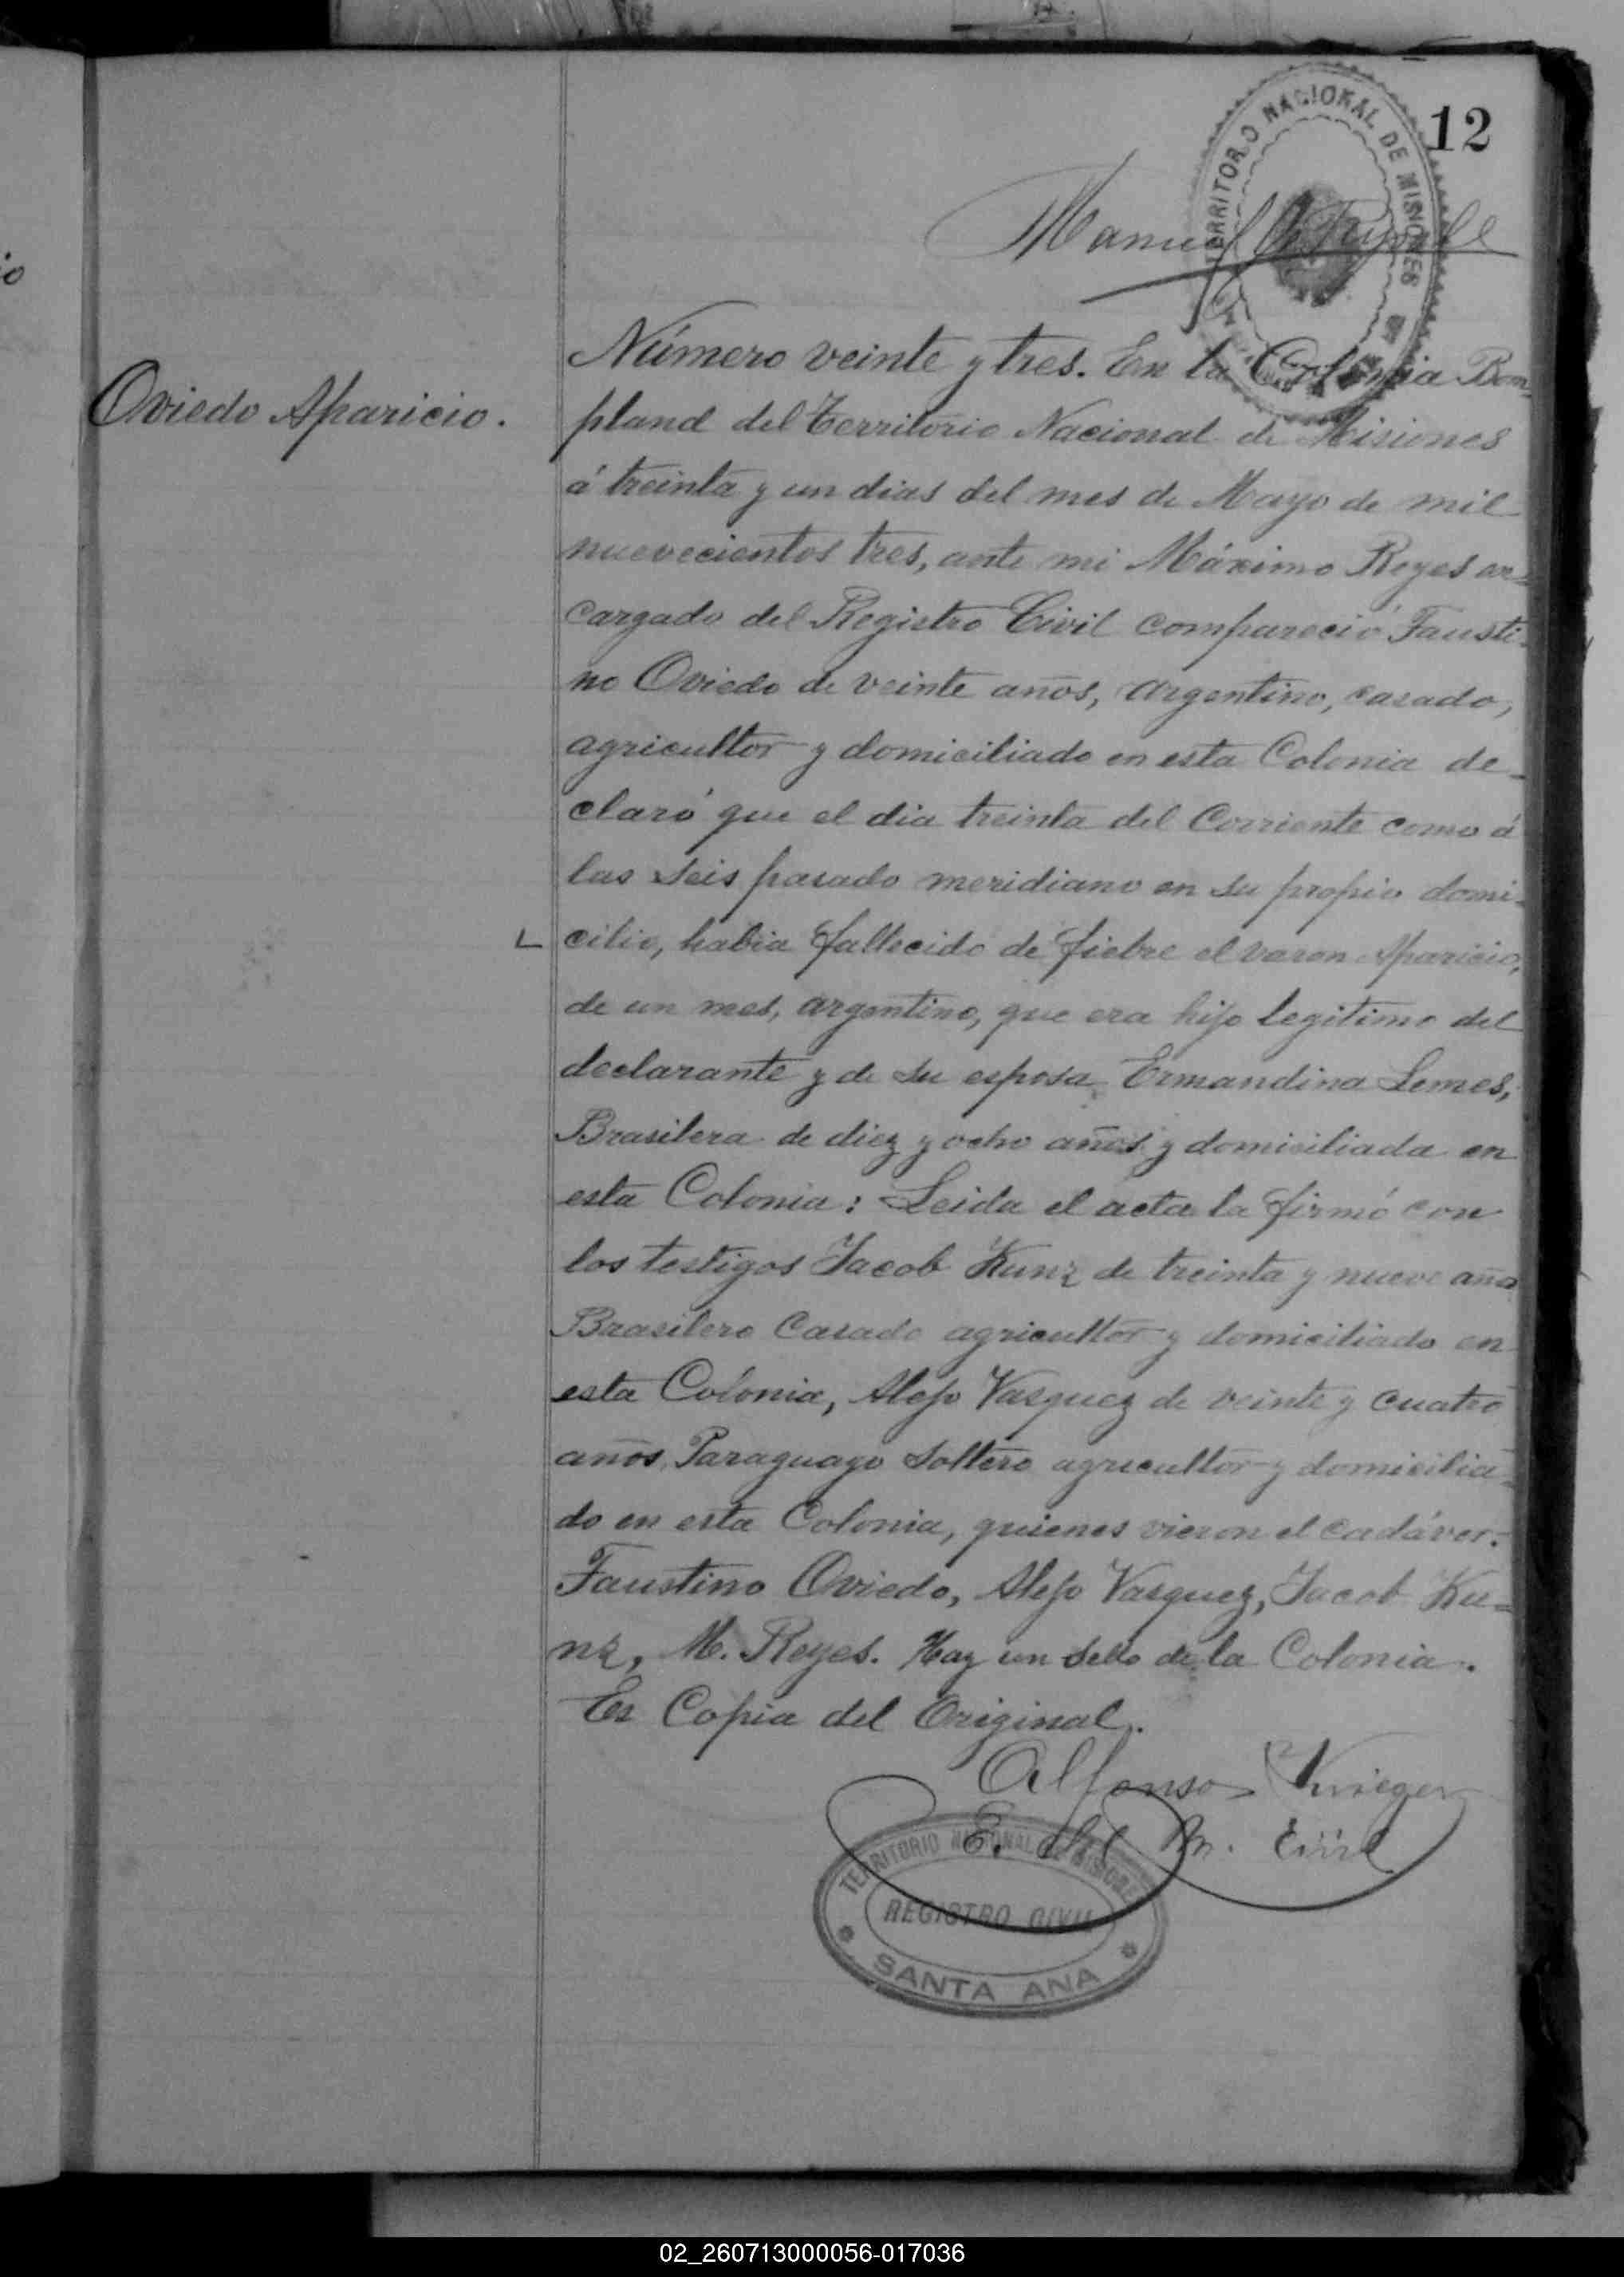 12
TERRITORIO NACIONAL DE MISIONES
Manuel
Oviedo Aparicio.
Número veinte y tres. En la Colonia Bom-
pland del Territorio Nacional de Misiones
á treinta y un dias del mes de Mayo de mil
nuevecientos tres, ante mi Máximo Reyes en-
cargado del Registro Civil compareció Fausti-
no Oviedo de veinte años, argentino, casado,
agricultor y domiciliado en esta Colonia de-
claró que el dia treinta del Corriente como á
las seis pasado meridiano en su propio domi-
cilio, habia fallecido de fiebre el varon Aparicio,
de un mes, argentino, que era hijo legitimo del
declarante y de su esposa Ermandina Lemes,
Brasilera de diez y ocho años y domiciliada en
esta Colonia: Leida el acta la firmó con
los testigos Jacob Kunz de treinta y nueve años
Brasilero Casado agricultor y domiciliado en
esta Colonia, Alejo Vasquez de veinte y cuatro
años, Paraguayo Soltero agricultor y domicilia-
do en esta Colonia, quienes vieron el cadáver.
Faustino Oviedo, Alejo Vasquez, Jacob Ku-
nz, M. Reyes. Hay un sello de la Colonia.
Es Copia del Original.
Alfonso Krieger
E. del R. Civil
TERRITORIO NACIONAL DE MISIONES
REGISTRO CIVIL
SANTA ANA
02_260713000056-017036